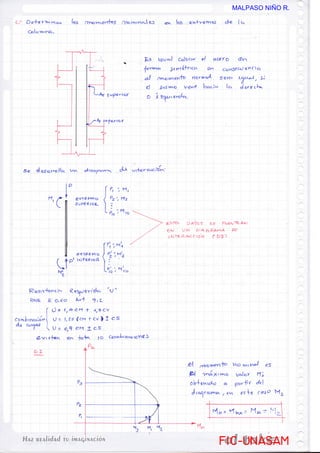 MALPASO NIÑO R.
c: Determinar los momentos nominales en los extremos de la
columna.
Es usual colocar el acero en
forma simétrica en consecuencia
el momento nominal sera igual, si
el sismo viene hacia la derecha
o izquierda.
As superior
As inferior
Se desarrolla un diagrama de interacción:
P
M₁
EXTREMO
SUPERIOR
P₁ ; M₁
P₂ ; M₂
P₁₀ ; M₁₀
ESTOS DATOS SE PLANTEAN
EN UN DIAGRAMA DE
INTERACCION
EXTREMO
INFERIOR
P'₁ ; M'₁
P'₂ ; M'₂
P'₁₀ ; M'₁₀
Resistencia Requerida "U"
RNE E 0.60 Art 9.2
Combinación
de cargas
U = 1,4 CM + 1,7 CV
U = 1,25 (CM + CV) ± CS
U = 0,9 CM ± CS
Existen en total 10 combinaciones
C.1
Pn
P₃
P₂
P₁
M₃ M₁ M₂
Mn
el momento nominal es
El máximo valor Mi
obtenido a partir del
diagrama, en este caso M₂
Haz realidad tu imaginación
FIC-UNASAM